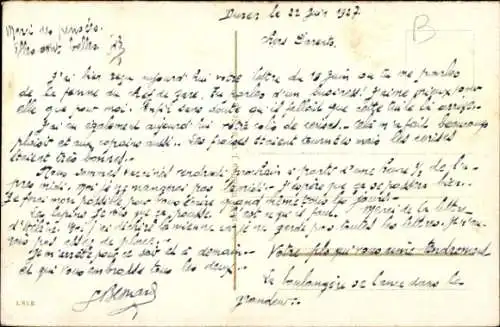 Duren le 22 Juin 1927.
Merci des pensées.
Elles sont belles
B
Chers Parents,
J'ai bien reçu aujourd'hui votre lettre du 19 juin ou tu me parles
de la femme du chef de gare. Tu parles d'un business! J'aime mieux pour
elle que pour moi. Enfin sans doute qu'il fallait que cette tuile lui arrive.
J'ai eu également aujourd'hui votre colis de cerises. Cela m'a fait beaucoup
plaisir et aux copains aussi. Les fraises étaient tournées mais les cerises
étaient très bonnes.
Nous sommes vendredi prochain à partir d'une heure 1/2 de l'a-
près midi. Moi je ne mangerai pas J'espère que ça se passera bien.
Je ferai mon possible pour vous écrire quand même tous les jours.
Les lapins je vois que ça pousse. C'est ce qu'il faut. Merci de la lettre
Moi j'ai déchiré la mienne car je ne garde pas toutes les lettres. Je n'au-
rais pas assez de place.
Je m'arrête pour ce soir et à demain.
Votre fils qui vous aime
et qui vous embrasse tous les deux.
La boulangère se lance dans la
grandeur.
L.N.I.B.